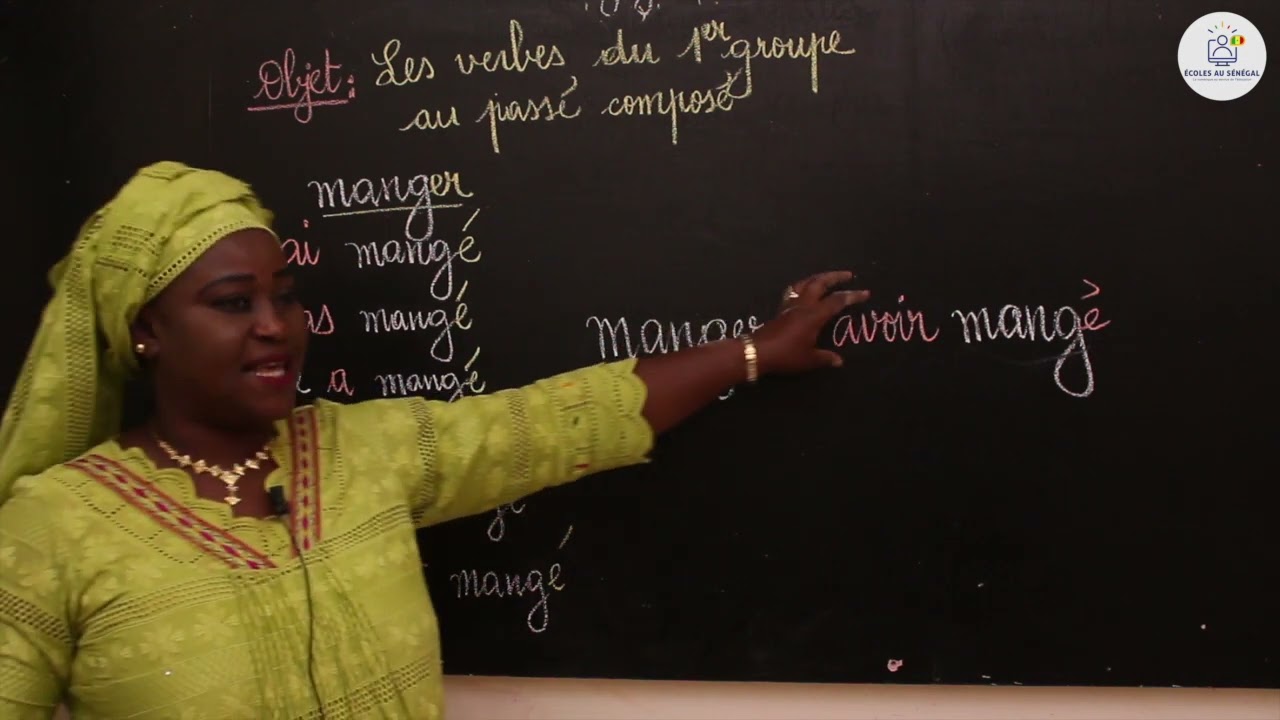 Objet: Les verbes du 1er groupe
au passé composé
manger
ai mangé
as mangé
a mangé
mangé
manger avoir mangé
ÉCOLES AU SÉNÉGAL